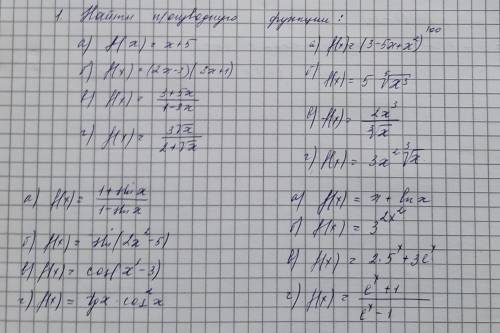 1. Найти производную функции:
а) f(x) = x+5
б) f(x) = (2x-3)(3x+1)
в) f(x) = \frac{3+5x}{1-3x}
г) f(x) = \frac{3\sqrt{x}}{2+\sqrt{x}}
а) f(x) = (3-5x+x^2)^{100}
б) f(x) = 5 \sqrt[5]{x^3}
в) f(x) = \frac{2x^3}{\sqrt[3]{x}}
г) f(x) = 3x^2 \sqrt[3]{x}
а) f(x) = \frac{1+sin x}{1-sin x}
б) f(x) = sin(2x^2-5)
в) f(x) = cos(x^2-3)
г) f(x) = tg x · cos^2 x
а) f(x) = x + ln x
б) f(x) = 3^{2x^2}
в) f(x) = 2·5^x+3e^x
г) f(x) = \frac{e^x+1}{e^x-1}